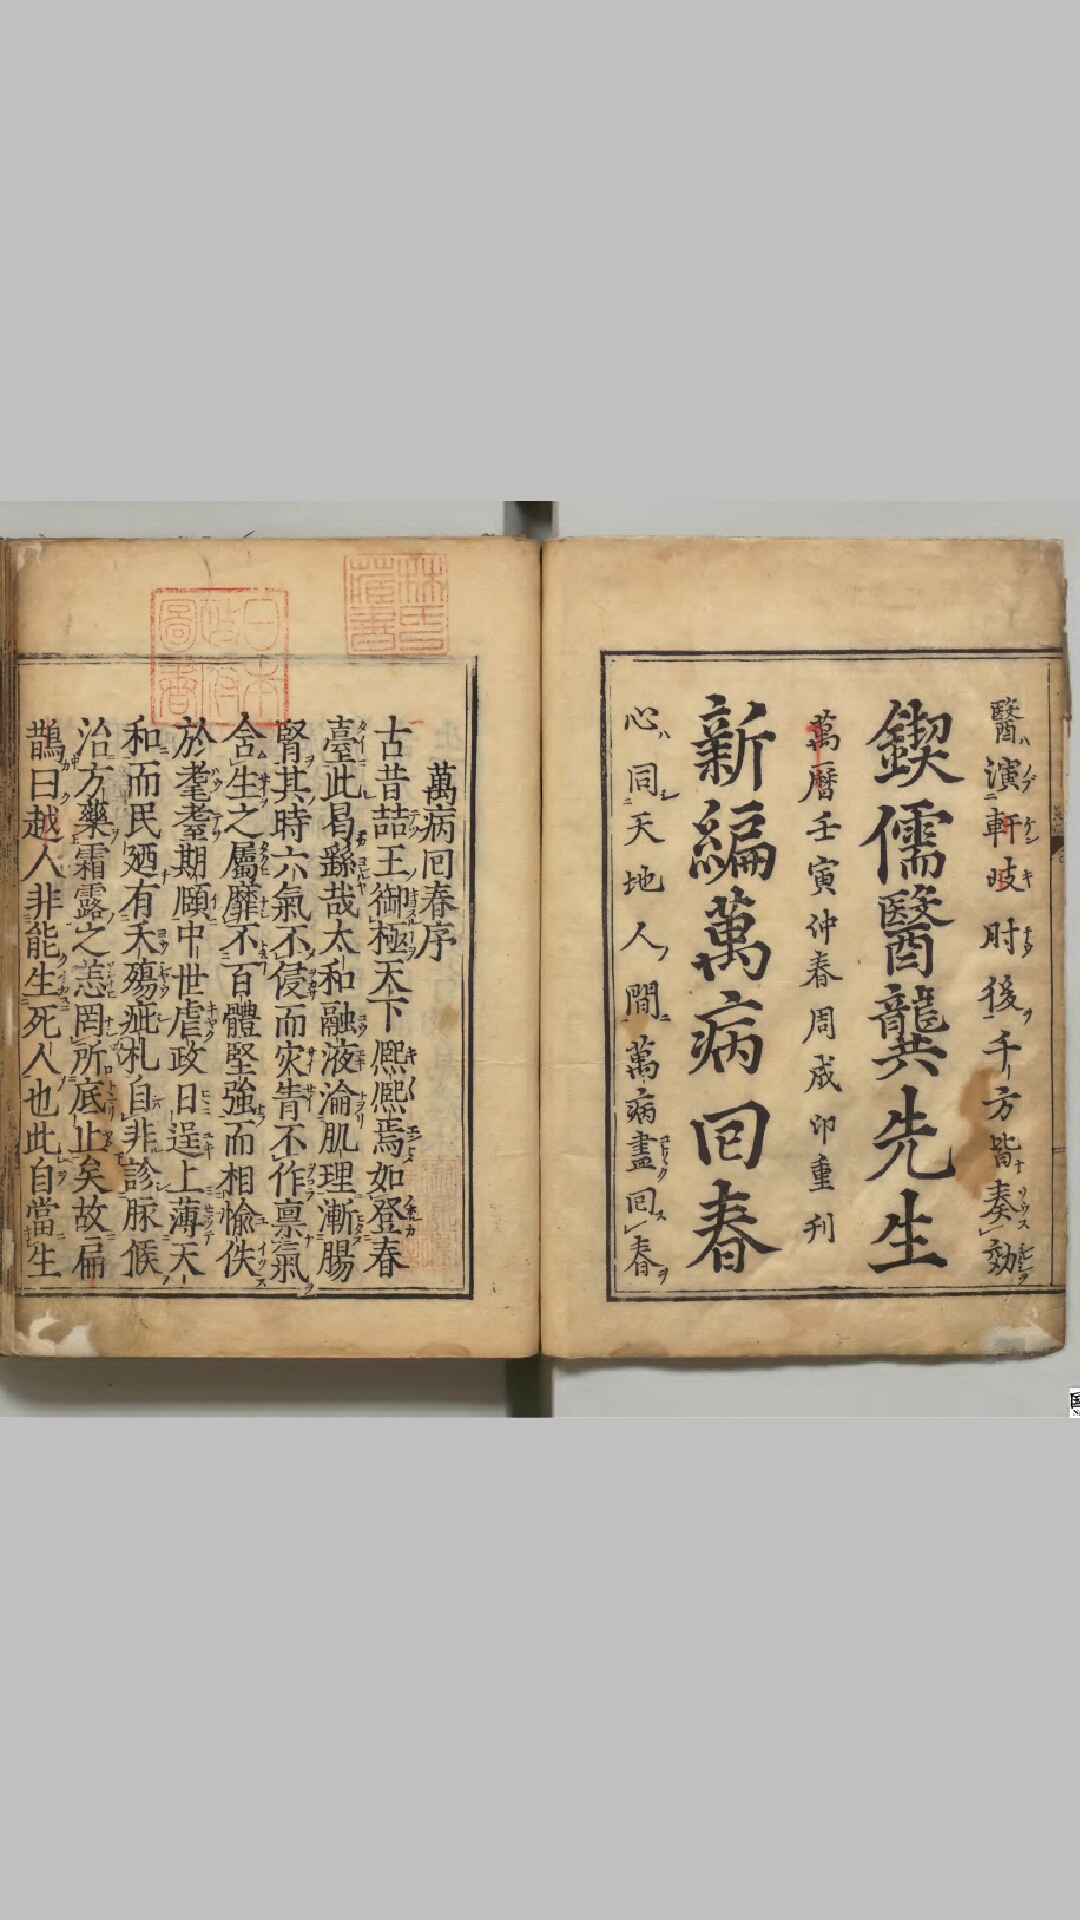 醫演軒岐肘後千方皆奏効
鍥儒醫龔先生
萬曆壬寅仲春周成印重刋
新編萬病回春
心同天地人間萬病盡回春
萬病回春序
古昔喆王御極天下熈熈焉如登春
臺此曷繇哉太和融液淪肌理漸腸
腎其時六氣不侵而灾眚不作禀氣
含生之屬靡不百體堅強而相愉佚
於耄耋期頤中世虐政日逞上薄天
和而民廼有夭殤疵札自非診脉候
治方藥霜露之恙罔所底止矣故扁
鵲曰越人非能生死人也此自當生
林氏藏書
日本政府圖書